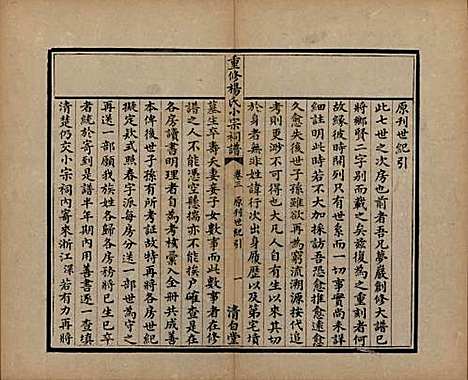 原刊世紀引
此七世之次房也前者吾兄夢嚴創修大譜已
將鄉賢二字因而載之矣茲復為之重刻者何
故緣彼時世系而一切事實尚未詳
細註明此時若不加採訪吾恐愈推愈遠愈
久愈失後世子孫雖欲再為窮流溯源按代追
考則更渺不可得也大凡人自有出以來其切
於身者無非姓諱行次出身履歷以及第宅墳
墓生卒壽夫妻妾子女數事而此數事者在修
譜之人不能憑空懸揣亦不能挨戶確查是在
各房讀書明理者自為考核彙入全冊共成善
本俾後世子孫有所考証故特再與各房世紀
擬定欵式照春字派每房分送一部世為守之
再送一部願我族姓各歸各房世紀生已生卒已
者統於寄到之後半年期內用善書逐一查填
清楚仍交小宗祠內寄來浙江深若有力再將
重修楊氏小宗祠譜
卷三 原刊世紀引
一
清白堂